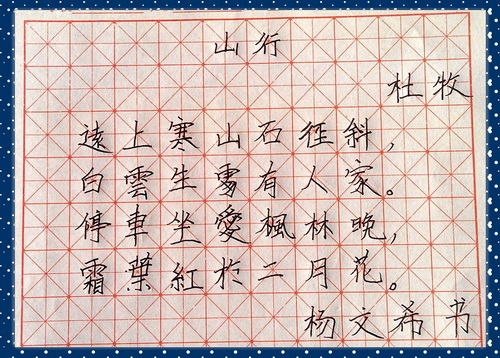 山行
杜牧
遠上寒山石徑斜,
白雲生處有人家。
停車坐愛楓林晚,
霜葉紅於二月花。
杨文希书